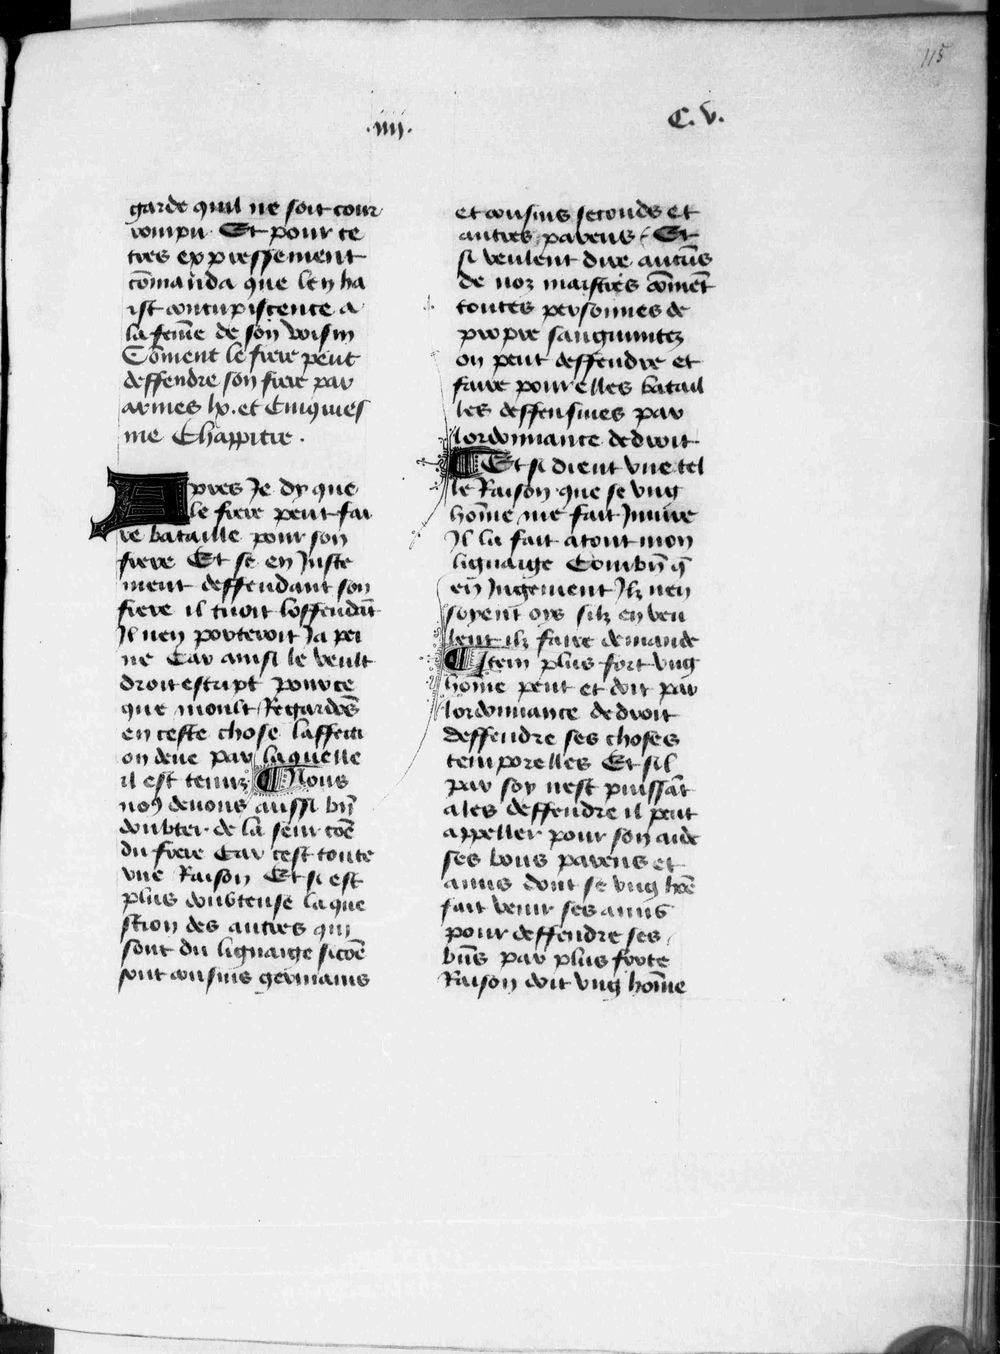 115
.iiii.
C. v.
garde quil ne soit cour
rompu Et pour ce
tres expressement
cōmanda que len ha
ist concupiscence a
la fēme de son voisin
Cōment le frere peut
deffendre son frere par
armes lx. et Cinquies
me Chappitre .
Apres Je dy que
le frere peut fai
re bataille pour son
frere Et se en Juste
ment deffendant son
frere il tuoit loffendāt
Il nen porteroit Ja pei
ne Car ainsi le veult
droit escript pource
que moult Regardēs
en ceste chose laffecti
on deue par laquelle
il est tenuz Nous
noꝯ deuons aussi bīn
doubter de la seur cōē
du frere Car cest toute
vne Raison Et si est
plus doubteuse la que
stion des autres qui
sont du lignaige sicōē
sont cousins germains
et cousins seconds et
autres parens Et
si veulent dire aucūs
de noz maistres cōmēt
toutes personnes de
propre sanguinitez
on peut deffendre et
faire pour elles batail
les deffensiues par
lordonnance de droit
Et si dient vne tel
le Raison que se vng
hōme me fait Iniure
Il la fait a tout mon
lignaige Combīn q̄
en Jugement Ilz nen
soyent oys silz en veu
lent ilz faire demande
Item plus fort vng
home peut et doit par
lordonnance de droit
deffendre ses choses
temporelles Et sil
par soy nest puissāt
a les deffendre il peut
appeller pour son aide
ses bons parens et
amis dont se vng hōē
fait venir ses amis
pour deffendre ses
bīns par plus forte
Raison doit vng hōme